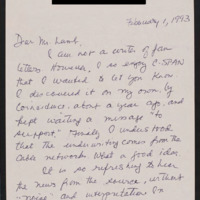 February 1, 1993
Dear Mr. Lamb,
I am not a writer of fan
letters. However, I so enjoy C-SPAN
that I wanted to let you know
I discovered it on my own, by
coincidence, about a year ago, and
kept waiting a message "to
support". Finally I understood
that the underwriting comes from the
cable networks. What a good idea.
It is so refreshing to hear
the news from the source, without
"noise" and interpretation. In